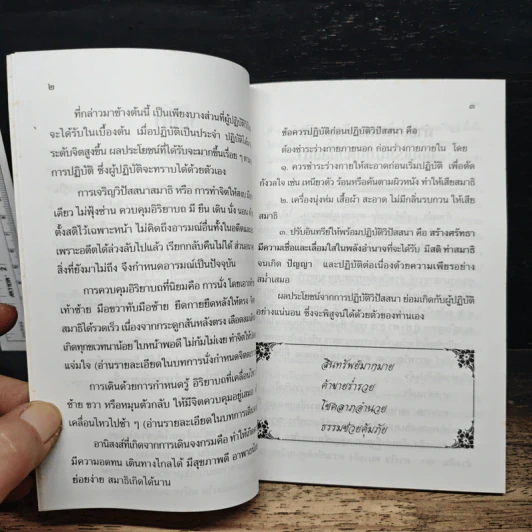 ๒
ที่กล่าวมาข้างต้นนี้ เป็นเพียงบางส่วนที่ผู้ปฏิบัติ
จะได้รับในเบื้องต้น เมื่อปฏิบัติเป็นประจำ ปฏิบัติได้
ระดับจิตสูงขึ้น ผลประโยชน์ที่ได้รับจะมากขึ้นเรื่อย ๆ
การปฏิบัติ ซึ่งผู้ปฏิบัติจะทราบได้ด้วยตัวเอง
การเจริญวิปัสสนาสมาธิ หรือ การทำจิตให้สงบ
เดียว ไม่ฟุ้งซ่าน ควบคุมอิริยาบถ มี ยืน เดิน นั่ง นอน
ตั้งสติไว้เฉพาะหน้า ไม่คิดถึงอารมณ์อื่นทั้งในอดีต
เพราะอดีตได้ล่วงลับไปแล้ว เรียกกลับคืนไม่ได้
สิ่งที่ยังมาไม่ถึง จึงกำหนดอารมณ์เป็นปัจจุบัน
การควบคุมอิริยาบถที่นิยมคือ การนั่ง โดยเอา
เท้าซ้าย มือขวาทับมือซ้าย ยืดกายยืดหลังให้ตรง
สมาธิได้รวดเร็ว เนื่องจากกระดูกสันหลังตรง
เกิดทุกขเวทนาน้อย ใบหน้าพอดี ไม่ก้มไม่เงย
แจ่มใจ (อ่านรายละเอียดในบทการนั่งกำหนดจิต
การเดินด้วยการกำหนดรู้ อิริยาบถที่เคลื่อน
ซ้าย ขวา หรือหมุนตัวกลับ ให้มีจิตควบคุมอยู่เสมอ
เคลื่อนไหวไปช้า ๆ (อ่านรายละเอียดในบทการเดิน
อานิสงส์ที่เกิดจากการเดินจงกรมคือ ทำให้
มีความอดทน เดินทางไกลได้ มีสุขภาพดี
ย่อยง่าย สมาธิเกิดได้นาน
๓
ข้อควรปฏิบัติก่อนปฏิบัติวิปัสสนา คือ
ต้องชำระร่างกายภายนอก ก่อนร่างกายภายใน โดย
๑. ควรชำระร่างกายให้สะอาดก่อนเริ่มปฏิบัติ เพื่อตัด
กังวลใจ เช่น เหนียวตัว ร้อนหรือคันตามผิวหนัง ทำให้เสียสมาธิ
๒. เครื่องนุ่งห่ม เสื้อผ้า สะอาด ไม่มีกลิ่นรบกวน ให้เสีย
สมาธิ
๓. ปรับอินทรีย์ให้พร้อมปฏิบัติวิปัสสนา คือ สร้างศรัทธา
มีความเชื่อและเลื่อมใสในพลังอำนาจที่จะได้รับ มีสติ ทำสมาธิ
จนเกิด ปัญญา และปฏิบัติต่อเนื่องด้วยความเพียรอย่าง
สม่ำเสมอ
ผลประโยชน์จากการปฏิบัติวิปัสสนา ย่อมเกิดกับผู้ปฏิบัติ
อย่างแน่นอน ซึ่งจะพิสูจน์ได้ด้วยตัวของท่านเอง
สินทรัพย์มากมาย
ค้าขายร่ำรวย
โชคลาภอำนวย
ธรรมช่วยคุ้มภัย